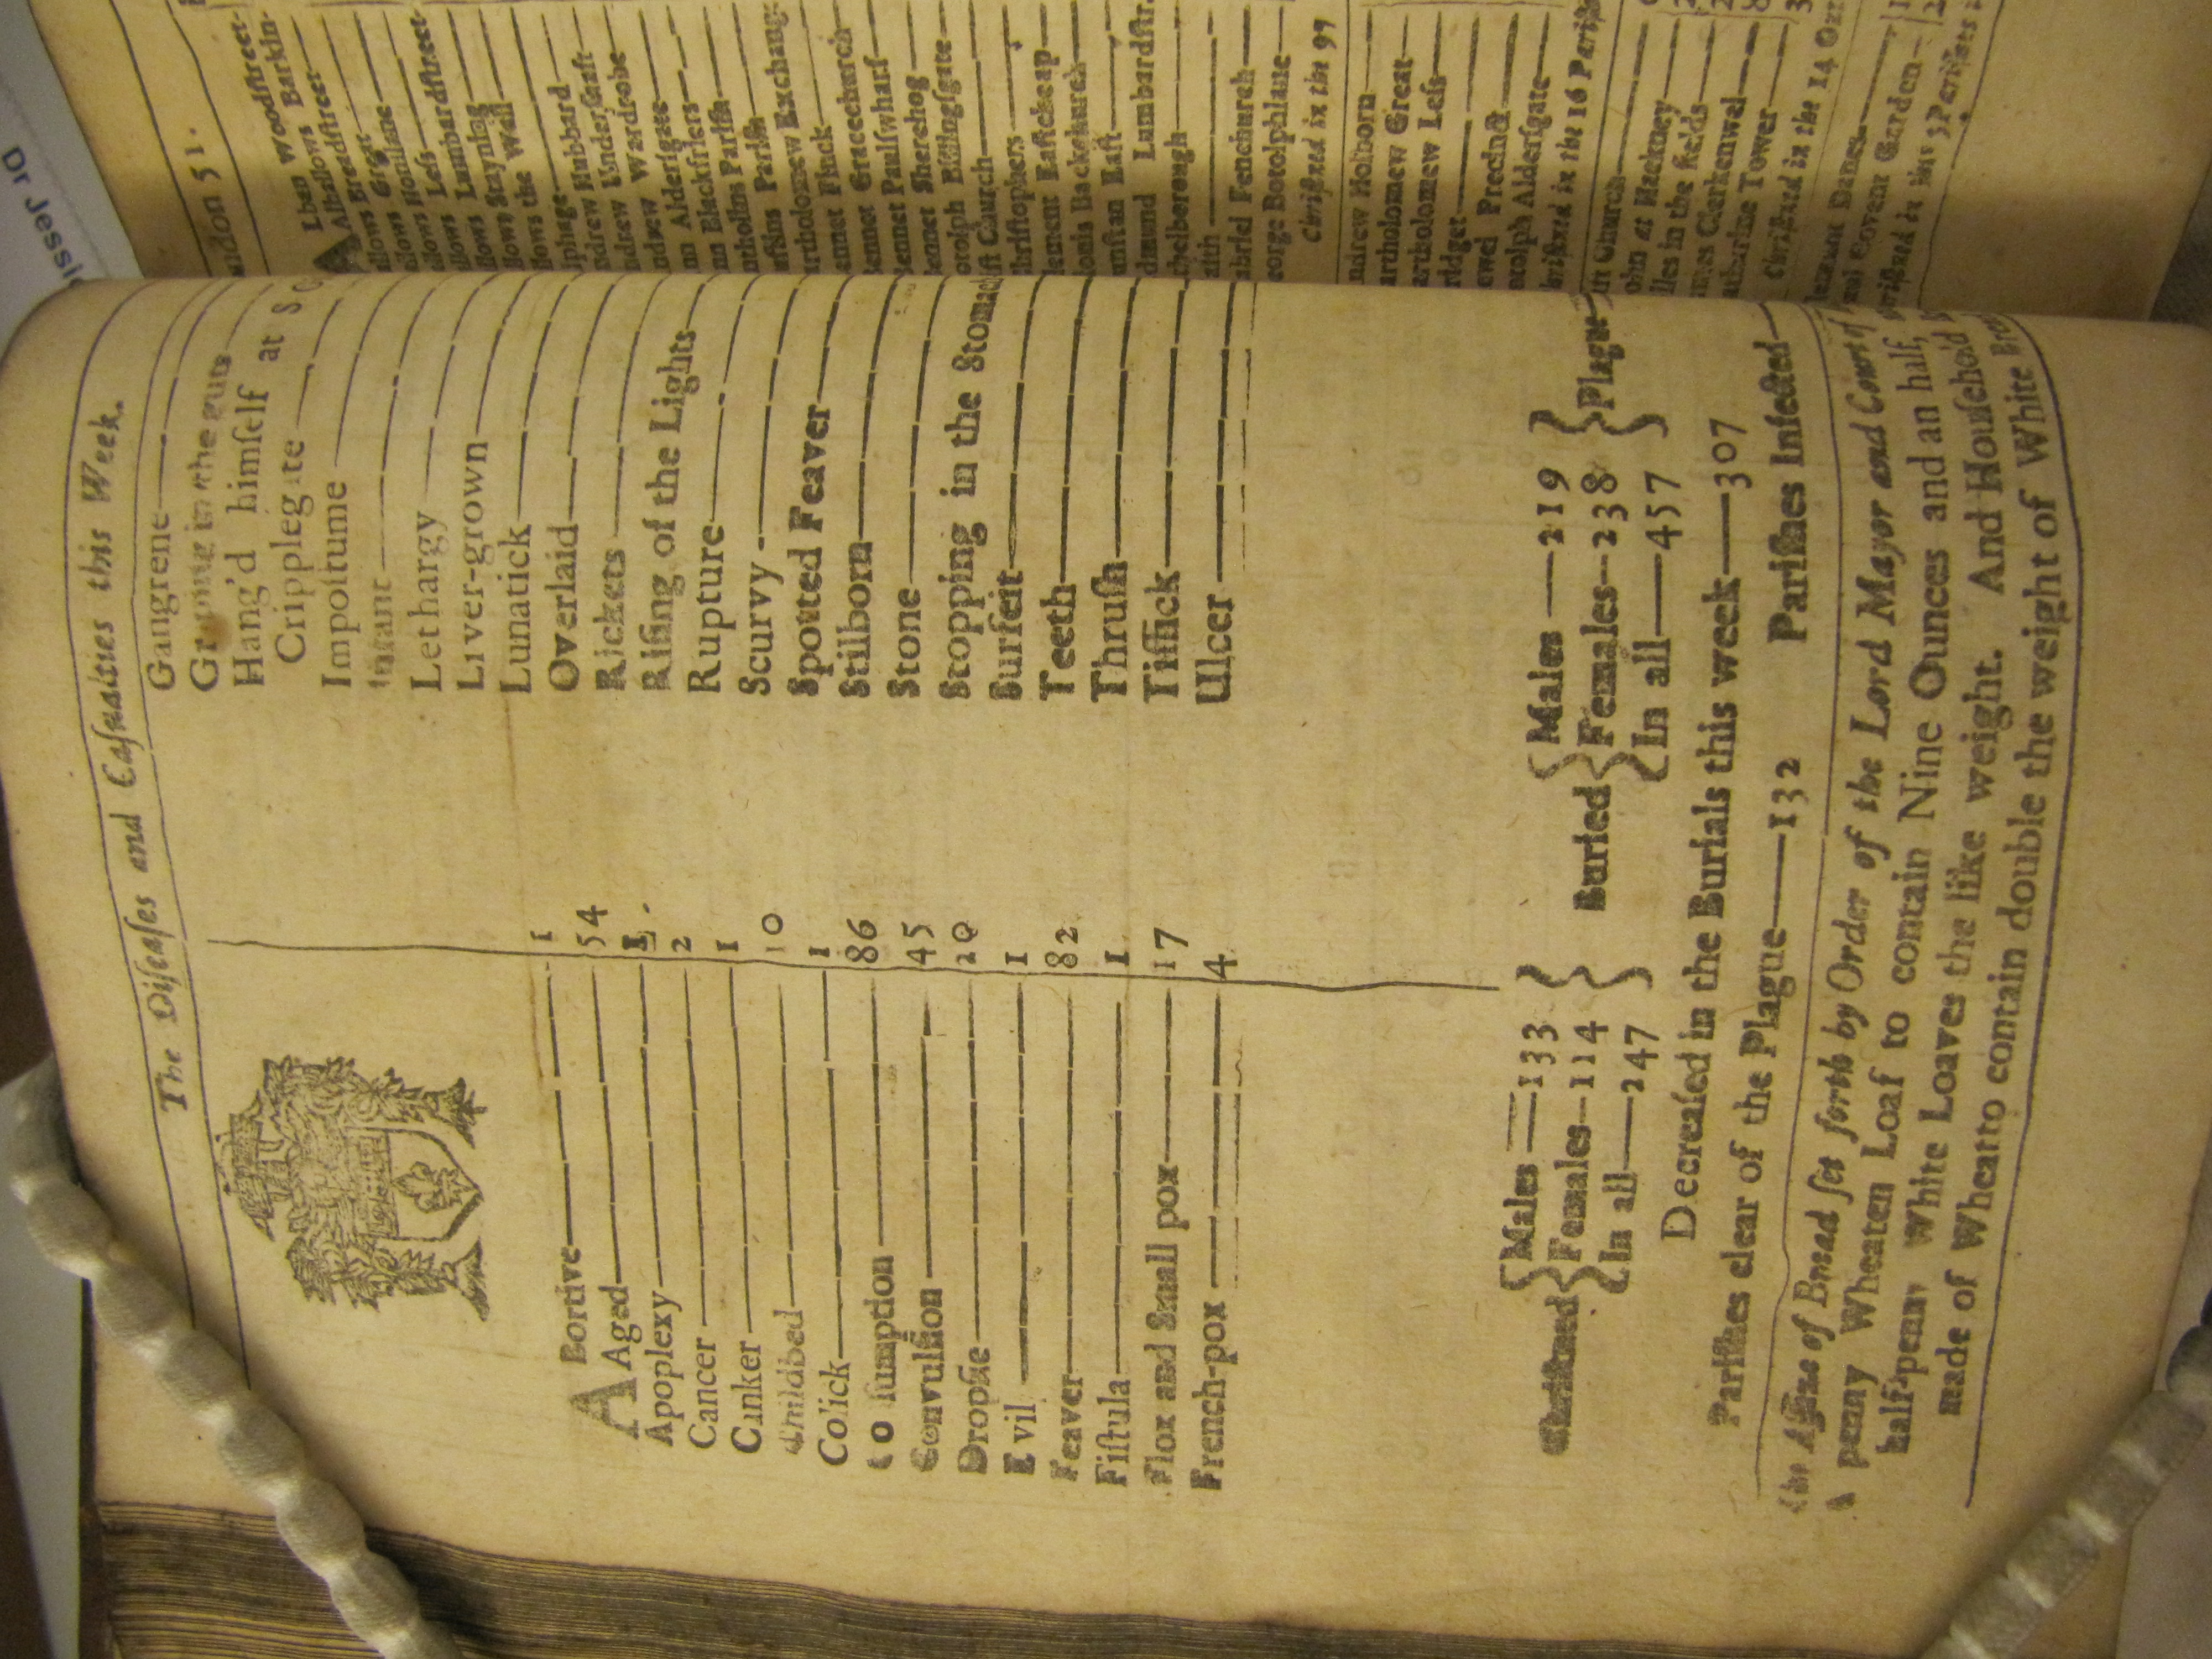 The Diſeaſes and Caſualties this Week.
ABortive 1
Aged 54
Apoplexy 1
Cancer 2
Canker 1
Childbed 10
Colick 1
Conſumption 86
Convulſion 45
Dropſie 20
Evil 1
Feaver 82
Fiſtula 1
Flox and Small pox 17
French-pox 4
Gangrene
Griping in the guts
Hang'd himſelf at S
Cripplegate
Impoſtume
Infant
Lethargy
Liver-grown
Lunatick
Overlaid
Rickets
Riſing of the Lights
Rupture
Scurvy
Spotted Feaver
Stilborn
Stone
Stopping in the Stomac
Surfeit
Teeth
Thruſh
Tiſſick
Ulcer
Chriſtned
Males 133
Females 114
In all 247
Buried
Males 219
Females 238
In all 457
Plague
Decreaſed in the Burials this week 307
Pariſhes clear of the Plague 132 Pariſhes Infected
The Aſſize of Bread ſet forth by Order of the Lord Mayor and Court of
A penny Wheaten Loaf to contain Nine Ounces and an half,
half-penny White Loaves the like weight. And Houſehold
made of Wheat to contain double the weight of White
ndon 51.
ALban Woodſtreet
Alhallows Barkin
Breadſtreet
allows Great
allows Honilane
allows Leſs
allows Lumbardſtreet
allows Stayning
llows the Wall
lphage
ndrew Hubbard
ndrew Underſhaft
ndrew Wardrobe
nn Alderſgate
nn Blackfriers
ntholins Pariſh
uſtins Pariſh
artholomew Exchang
ennet Finck
ennet Gracechurch
ennet Paulſwharf
ennet Sherehog
otolph Billingſgate
iſt Church
hriſtophers
lement Eaſtcheap
ionis Backchurch
unſtan Eaſt
dmund Lumbardſtr.
thelborough
aith
abriel Fenchurch
eorge Botolphlane
Chriſtned in the 97
ndrew Holborn
artholomew Great
artholomew Leſs
ridget
ewel Precinct
otolph Alderſgate
hriſtned in the 16 Pariſh
iſt Church
ohn at Hackney
iles in the fields
ames Clerkenwel
atharine Tower
Chriſtned in the 14
lement Danes
aul Covent Garden
hriſtned in the 5 Pariſhes
Dr Jessi